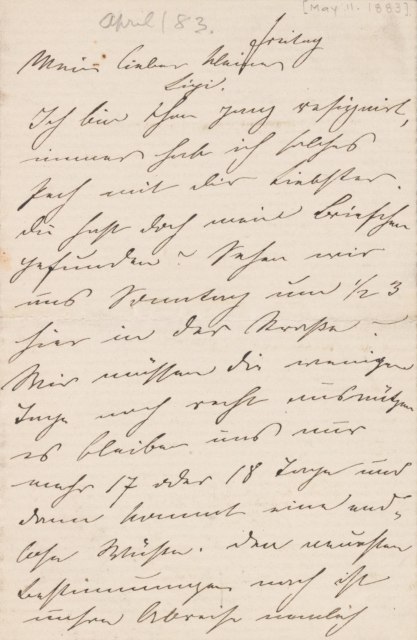 April / 83.
[May 11. 1883]
Freitag
Mein lieber kleiner
Ich bin schon ganz resignirt,
immer hab ich solches
Pech mit dir Liebster.
du hast doch mein Briefchen
gefunden? Sehen wir
uns Sonntag um 1/2 3
hier in der Straße?
Wir müssen die wenigen
Tage noch recht ausnützen
es bleiben uns nur
mehr 17 oder 18 Tage und
dann kommt eine end-
lose Wüste. den neuesten
Bestimmungen nach ist
unsere Abreise nämlich